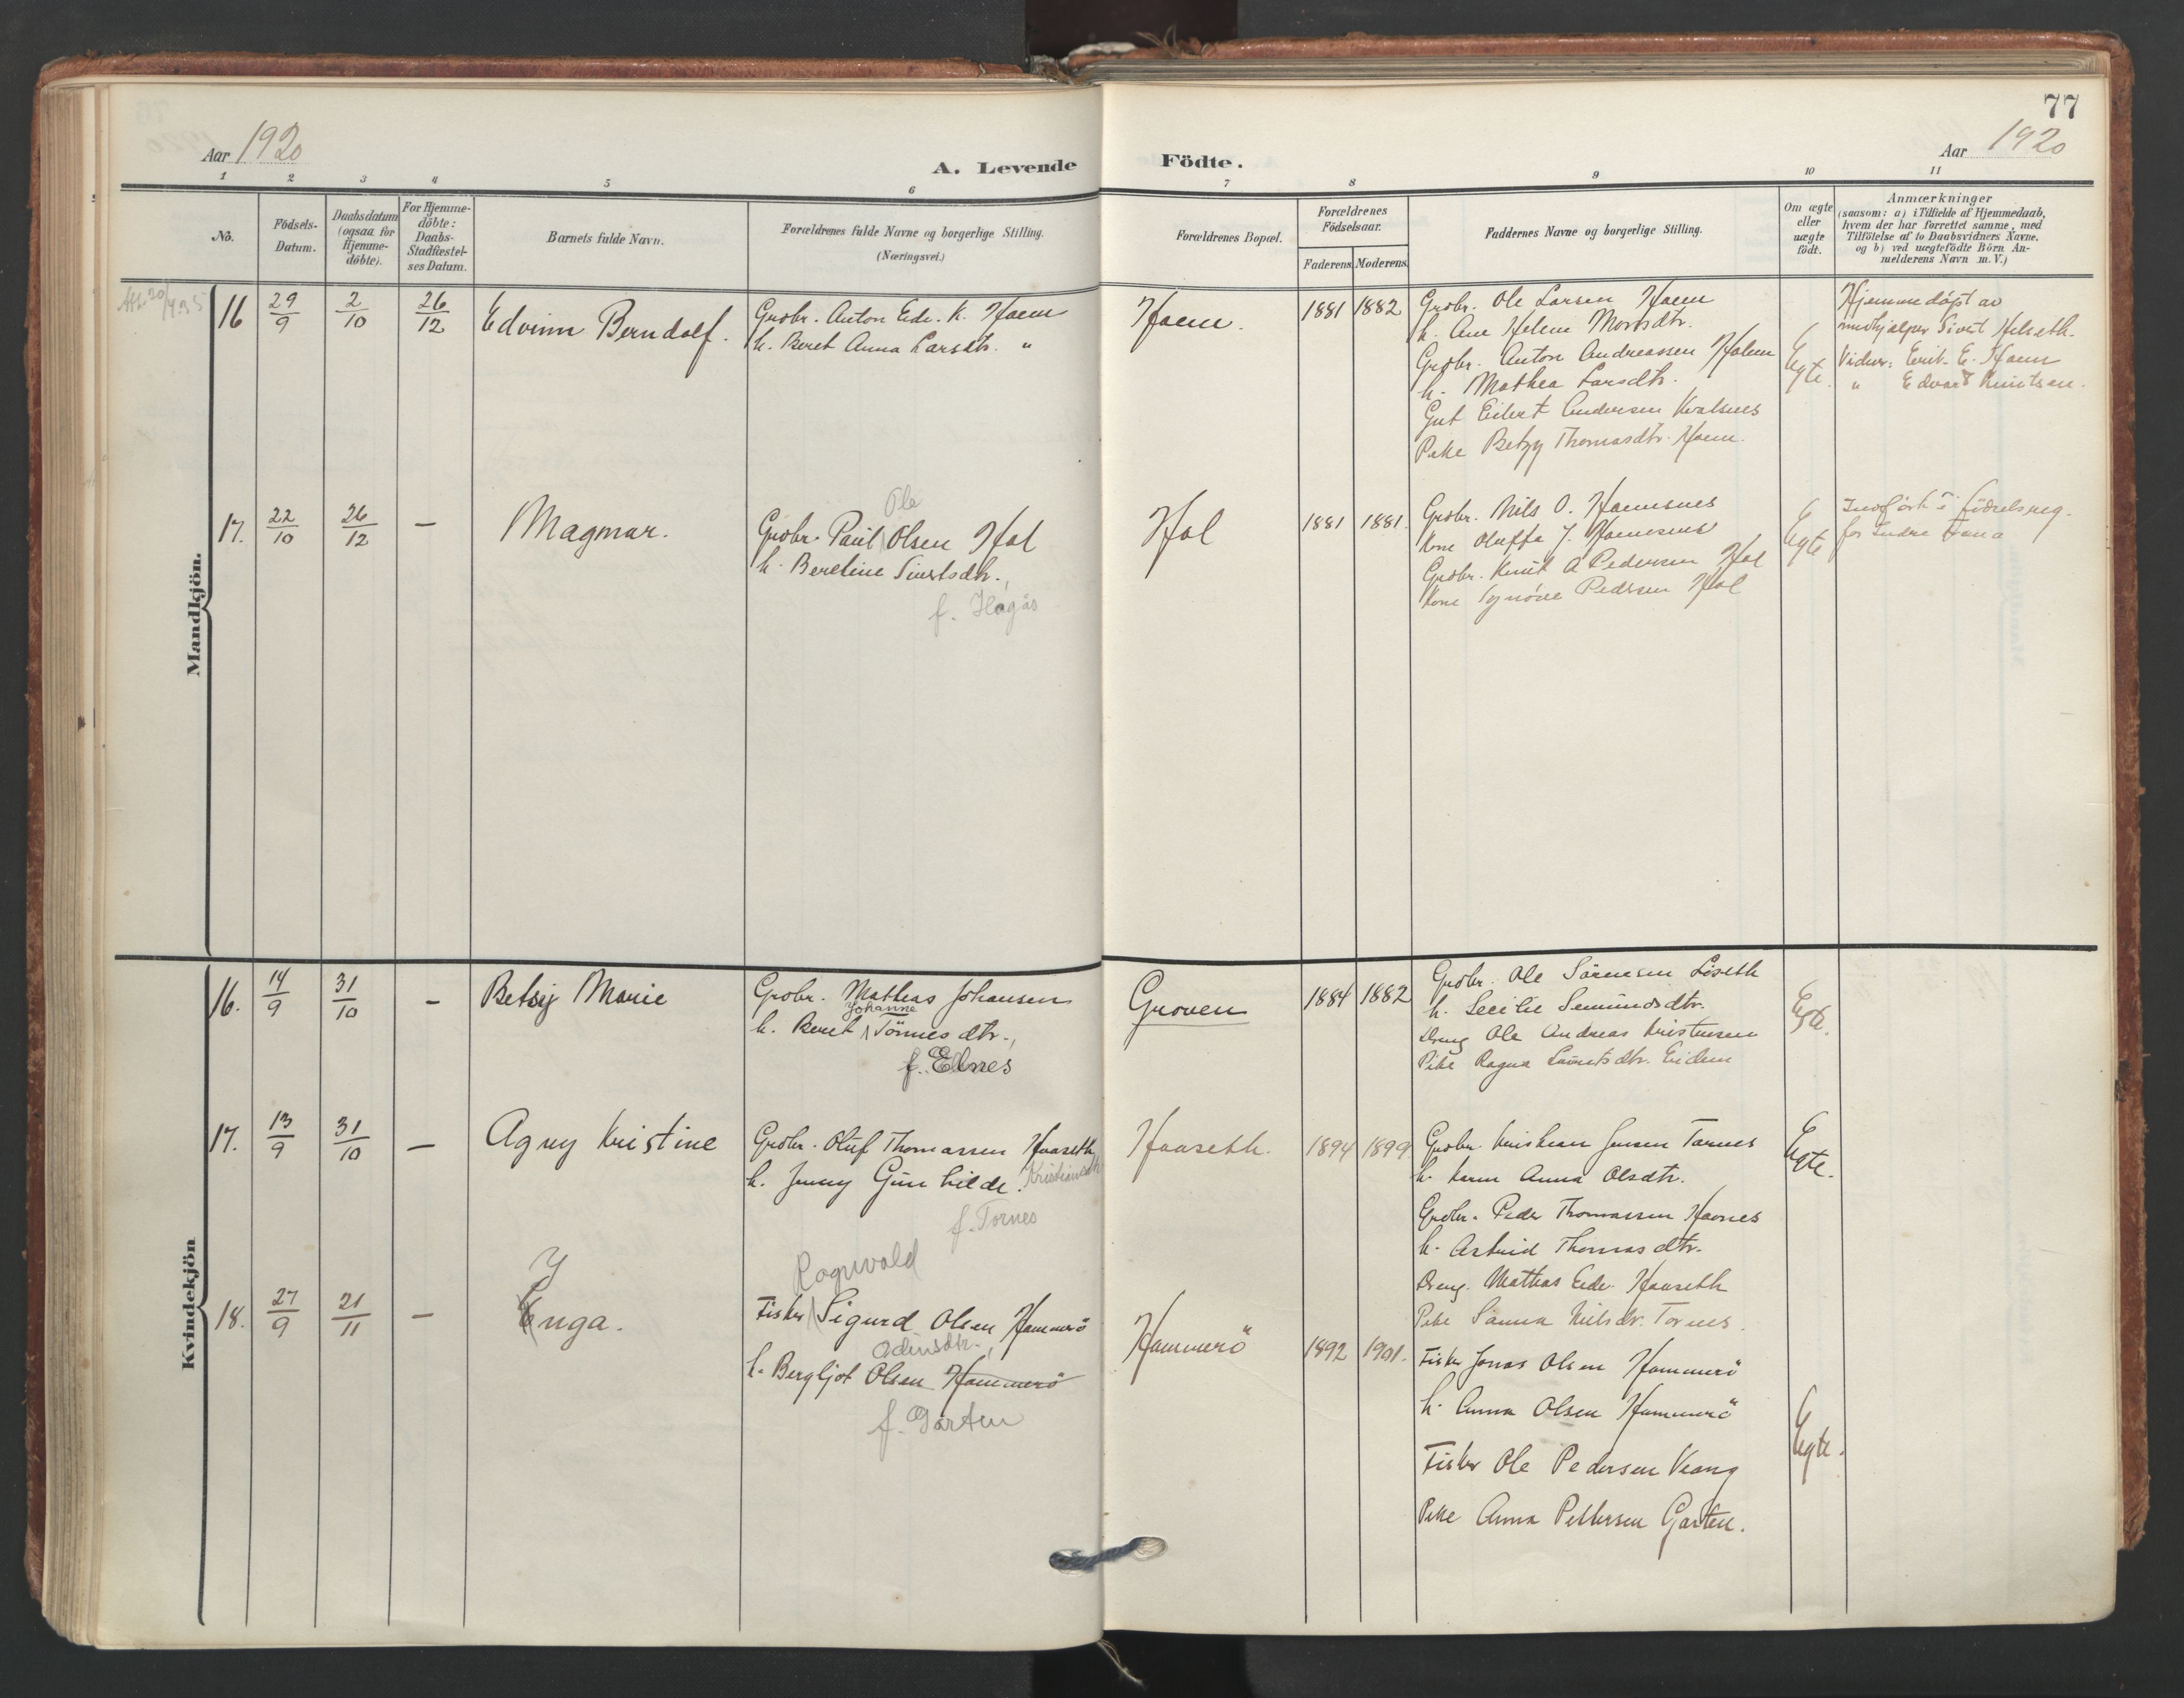 77
Aar 1920
A. Levende Födte.
Aar 1920
1 2 3 4 5 6 7 8 9 10 11
No.
Födsels-
Datum.
Daabsdatum
(ogsaa for
Hjemme-
döbte).
For Hjemme-
döbte:
Daabs-
Stadfæstel-
ses Datum.
Barnets fulde Navn.
Forældrenes fulde Navne og borgerlige Stilling.
(Næringsvei.)
Forældrenes Bopæl.
Forældrenes
Födselsaar.
Faderens. Moderens.
Faddernes Navne og borgerlige Stilling.
Om ægte
eller
uægte
födt.
Anmærkninger
(saasom: a) i Tilfælde af Hjemmedaab,
hvem der har forrettet samme, med
Tilföielse af to Daabsvidners Navne.
og b) ved uægtefödte Börn An-
melderens Navn m. V.)
Mandkjön.
16 29/9 2/10 26/12 Edvinn Berndolf.
Grobr. Anton Edv. K. Haem
h. Beret Anna Larsdtr. "
Haem. 1881 1882
Grobr. Ole Larsen Haem
h. Ane Helene Mortsdtr.
Grobr. Anton Andreassen Holem
h. Mathea Larsdtr.
Gut Eilert Andersen Kvalsnes
Pike Betzy Thomasdtr. Haem.
Egte.
Hjemmedøpt av
medhjelper Sivert Helseth.
Vidner: Erik E. Haem
" Edvard Knutsen.
17. 22/10 26/12 — Magmar.
Ole
Grobr. Paul Olsen Hol
h. Beretine Sivertsdtr.,
f. Hagås
Hol 1881 1881.
Grobr. Nils O. Hamsnes
Kone Oluffa J. Hamsnes
Grobr. Knut A Pedersen Hol
Kone Synøve Pedersen Hol
Egte
Indført i födselsreg.
for Indre Fræna
Kvindekjön
16. 14/9 31/10 — Betsy Marie
Grobr. Mathias Johansen
Johanne
h. Beret Tönnesdtr.,
f. Elnes
Groven 1884 1882
Grobr. Ole Sörensen Löseth
h. Secilie Semundsdtr.
Dreng Ole Andreas Kristensen
Pike Ragna Lauritsdtr. Eidem
Egte.
17. 13/9 31/10 — Agny Kristine
Grobr. Oluf Thomassen Haaseth
h. Jenny Gunhilde. Kristiansdtr
f. Tornes
Haaseth. 1894 1899
Grobr. Kristian Jensen Tornes
h. Karen Anna Olsdtr.
Grobr. Peder Thomassen Havnes
h. Astrid Thomasdtr.
Dreng. Mathias Edv. Haaseth
Pike Sanna Nilsdtr. Tornes.
Egte.
Y
18. 27/9 21/11 — Enga.
Ragnvald
Fisker Sigurd Olsen Hammerö
Odinsdtr.,
h. Bergljot Olsen Hammerö
f. Garten
Hammerö 1892 1901.
Fisker Jonas Olsen Hammerö
h. Anna Olsen Hammerö
Fisker Ole Pedersen Vaang
Pike Anna Pettersen Garten.
Egte.